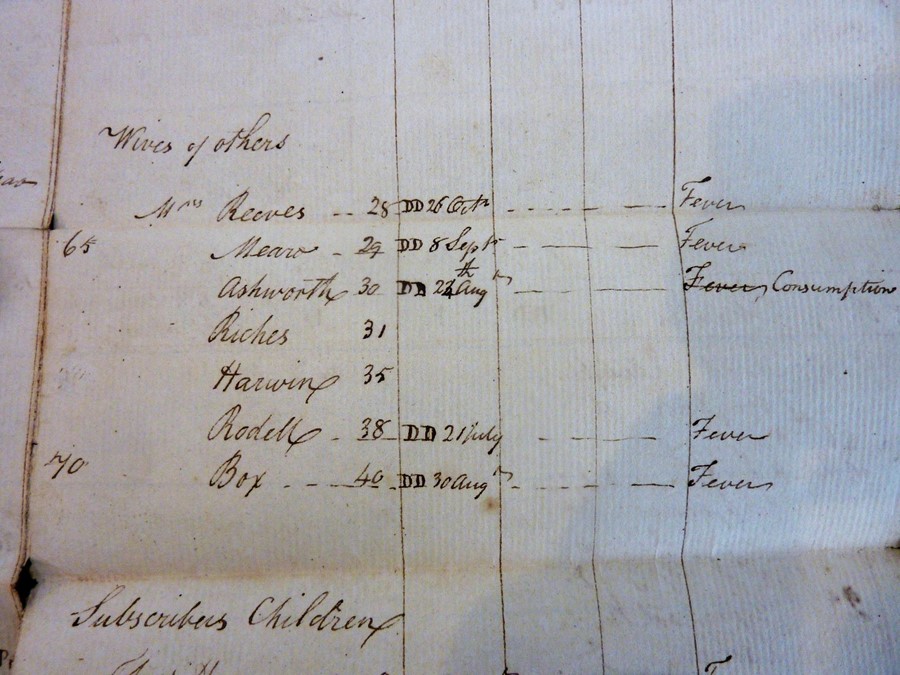 Wives of others
Mrs Reeves - - 28 DD 26 Octr - - - - - Fever
65 Mearo - 29 DD 8 Septr - - - - Fever
Ashworth 30 DD 24th Augt - - - Fever, Consumption
Riches 31
Harwin 35
Rodell - 38 - DD 21 July - - - Fever
70 Box - - - 40 - DD 30 Augt - - - - - Fever
Subscribers Children